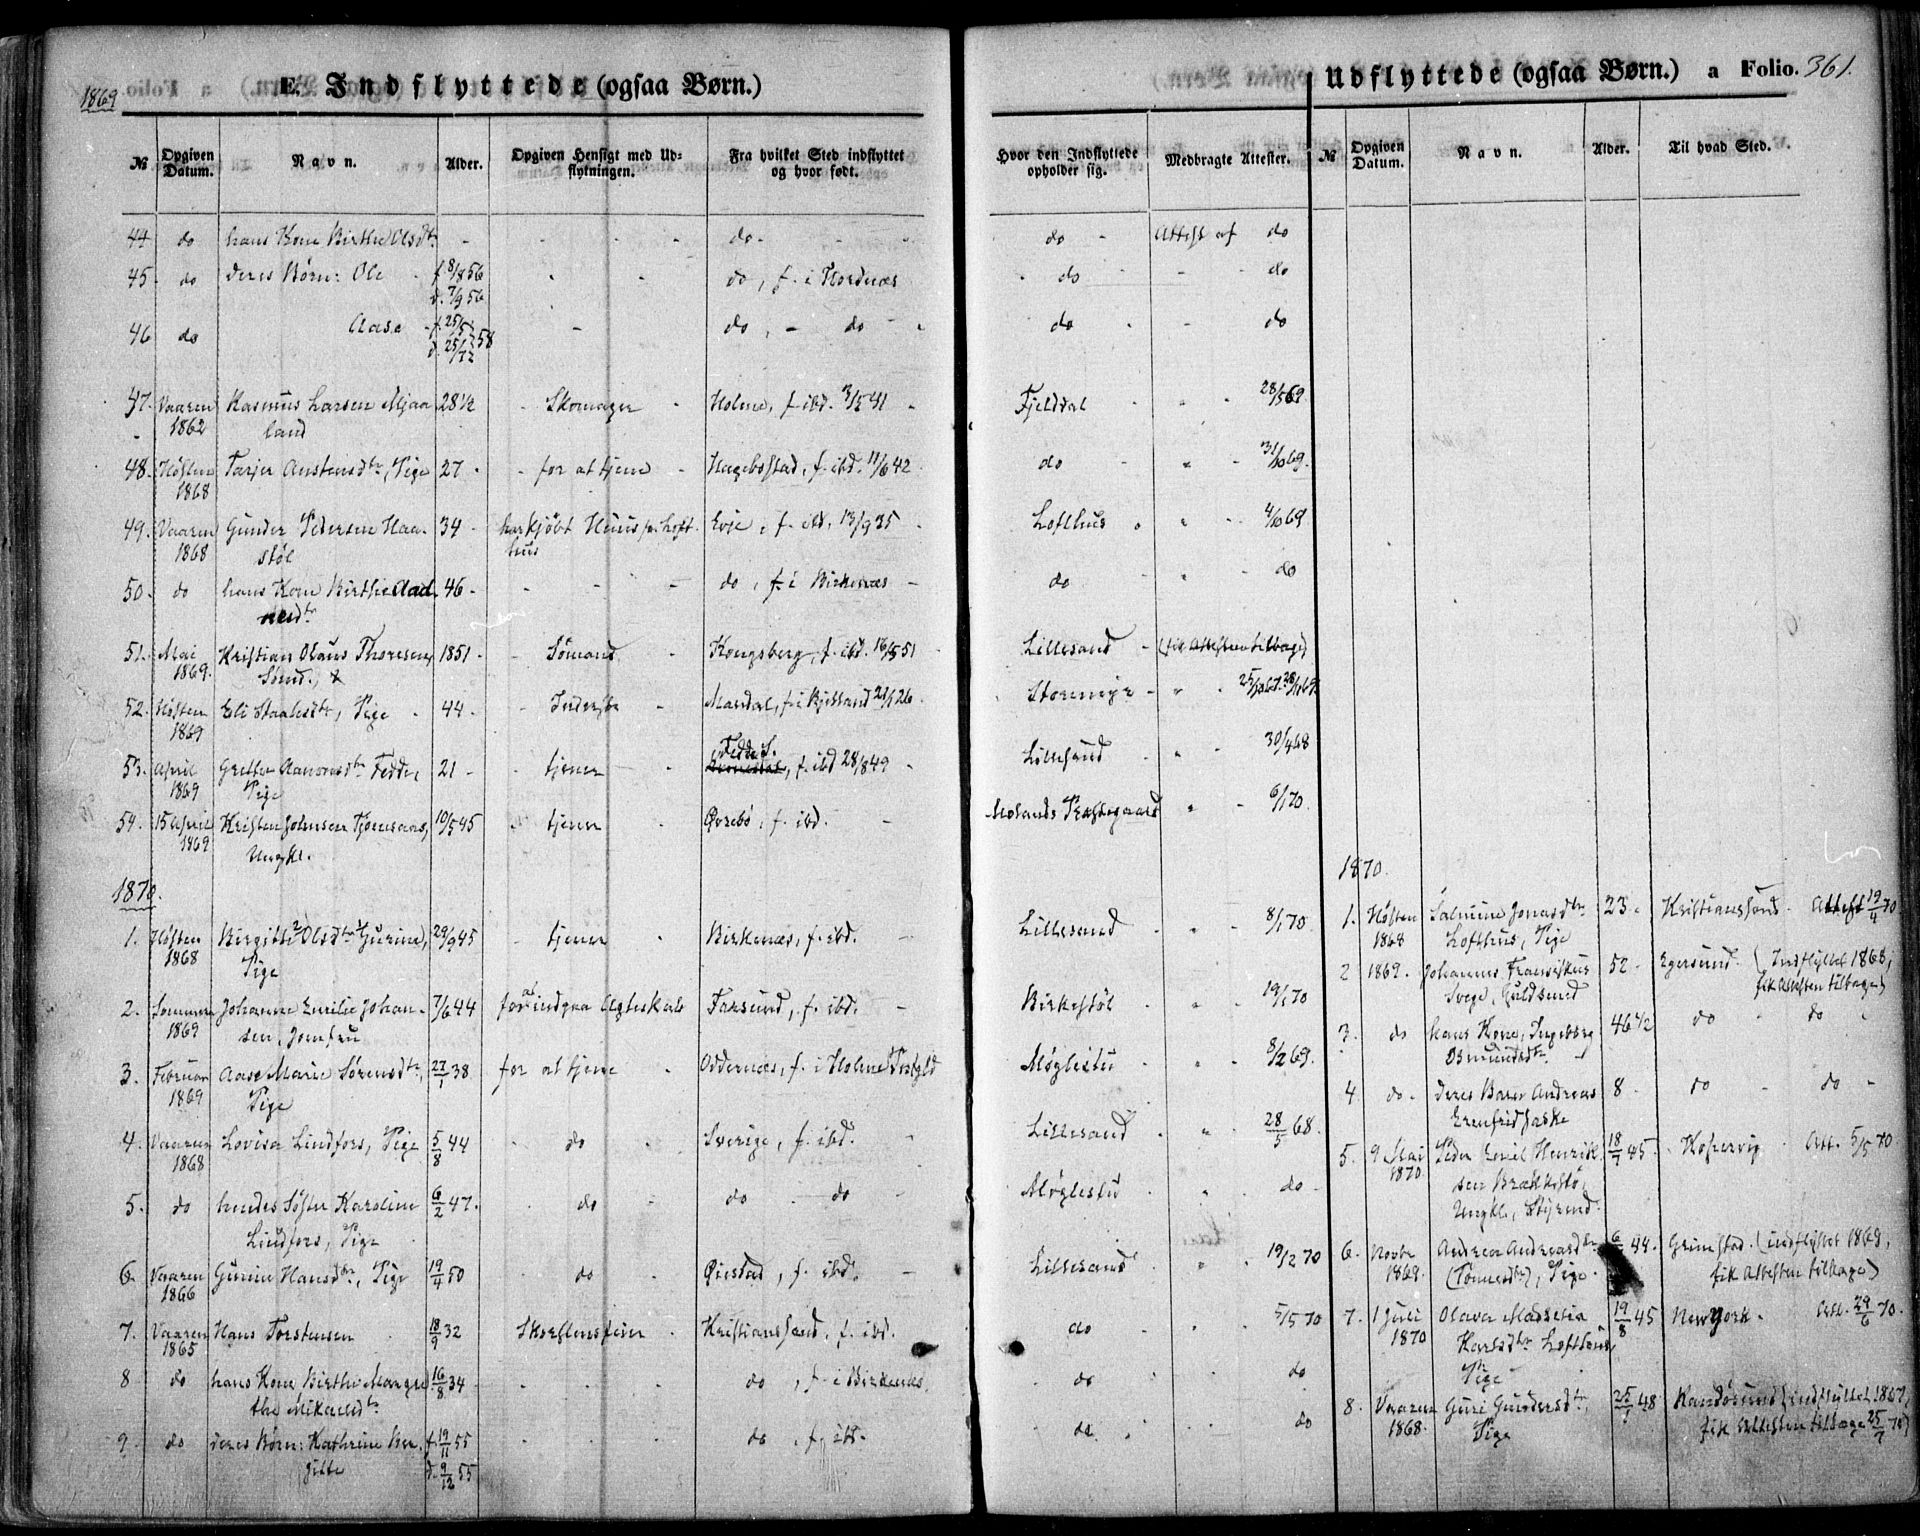 1869
E. Indflyttede (ogsaa Børn.)
№ Opgiven Datum. Navn. Alder. Opgiven Hensigt med Udflytningen. Fra hvilket Sted indflyttet og hvor født.
44 do hans Kone Birthe Olsdtr - - - do - -
45. do deres Børn: Ole f. 8/8 56 d. 7/9 56 do, f. i Hordnæs
46 do Aase f. 25/5 d. 25/12 58 - do, - do
47. Vaaren 1862 Rasmus Larsen Mjaaland 28 1/2 Skomager Holme, f. ibd. 3/5 41
48. Høsten 1868 Tarjer Austensdtr, Pige 27 - for at tjene Hægebostad, f. ibd. 11/6 42
49. Vaaren 1868 Gunder Pedersen Haastøl 34 har kjøbt Huus p. Lofthus Evje, f. ibd. 13/9 35
50. do hans Kone Birthe Aadnesdtr 46 - - do, f. i Birkenæs -
51. Mai 1869. Kristian Olaus Thoresen, Sømd., 1851 - Sømand Kongsberg, f. ibd. 16/5 51
52. Høsten 1869 Eli Staalesdtr, Pige 44 - Inderste Mandal, f. i Bjelland 21/1 26
53. April 1869 Grethe Aanonsdtr Fedde, Pige 21 - tjener Fedde S. f. ibd 28/8 49
54. 15 April 1869 Kristen Johnsen Tjomsaas, Ungkl. 10/5 45 tjener Øvrebø, f. ibd. -
1870.
1. Høsten 1868 Birgitte Olsdtr Gurine, Pige 29/9 45 - tjener Birkenæs, f. ibd.
2. Sommeren 1869 Johanne Emilie Johansen, Jomfru 7/6 44 for at indgaa Ægteskab Farsund, f. ibd. -
3. Februar 1869 Aase Marie Sørensdtr, Pige 27/1 38 for at tjene Oddernæs, f. i Holme Prstgld
4. Vaaren 1868 Lovisa Lindfors, Pige 5/8 44 do Sverige, f. ibd.
5. do hendes Søster Karoline Lindfors, Pige 6/2 47. do do - do
6. Vaaren 1866 Gurine Hansdtr, Pige 19/4 50 do Øiestad, f. ibd. -
7. Vaaren 1865 Hans Torstensen 18/9 32 Skorstensfeier Kristianssand, f. ibd.
8 do hans Kone Birthe Margrethe Mikaelsdtr 16/8 34 do, f. i Birkenæs.
9. do deres Børn: Kathrine Bergitte f. 19/11 55 d. 9/12 55 do, f. ibd.
Udflyttede (ogsaa Børn.) a Folio. 361.
Hvor den Indflyttede opholder sig. Medbragte Attester. № Opgiven Datum. Navn. Alder. Til hvad Sted.
do - Attest af do
do - - do
do - - do
Fjeldal 28/5 69
do 31/10 69.
Lofthus 4/10 69
do do
Lillesand - (fik Attesten tilbage)
Storemyr
Lillesand 30/4 68
Molands Præstegaard 6/1 70
1870.
Lillesand 8/1 70
Birkestøl 19/1 70
Møglestu 8/2 69.
Lillesand 28/5 68
Møglestu do
Lillesand 19/2 70
do 5/5 70
do do
do do
1. Høsten 1868 Salmine Jonasdtr Lofthus, Pige 23. Kristianssand. Attest 19/4 70
2 1869. Johannes Fransiskus Svege, Guldsmed 52 - Egersund. (Indflyttet 1868, fik Attesten tilbage)
3. do hans Kone, Ingeborg Osmundsdtr 46 1/2 do do
4. do deres Barn Andreas 8 - do - do -
5. 9 Mai 1870. Peder Emil Henriksen Brækkestø, Ungkl., Styrmd. 18/7 45. Kopervig Att. 5/5 70
6. Novbr 1869. Andrea Andreasdtr, Pige. 44. Grimstad. (indflyttet 1868, fik Attesten tilbage)
7. 1 Juli 1870 Olava Karlsdtr Lofthuus, Pige 19/8 45 New York. Att. 29/6 70.
8. Vaaren 1868. Guri Gundersdtr, Pige 48 Randøsund (indflyttet 1867, fik Attesten tilbage 25/7 70)